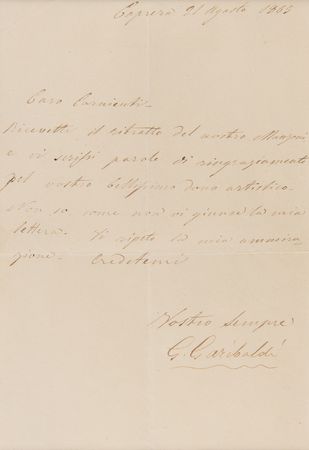 Caprera 21 Agosto 1865
Caro Carnienti -
Ricevetti il ritratto del vostro Manzoni
e vi scrissi parole di ringraziamento
pel vostro bellissimo dono artistico.
Non so come non vi giunse la mia
lettera. Vi ripeto la mia ammira
zione. Credetemi
Vostro sempre
G. Garibaldi